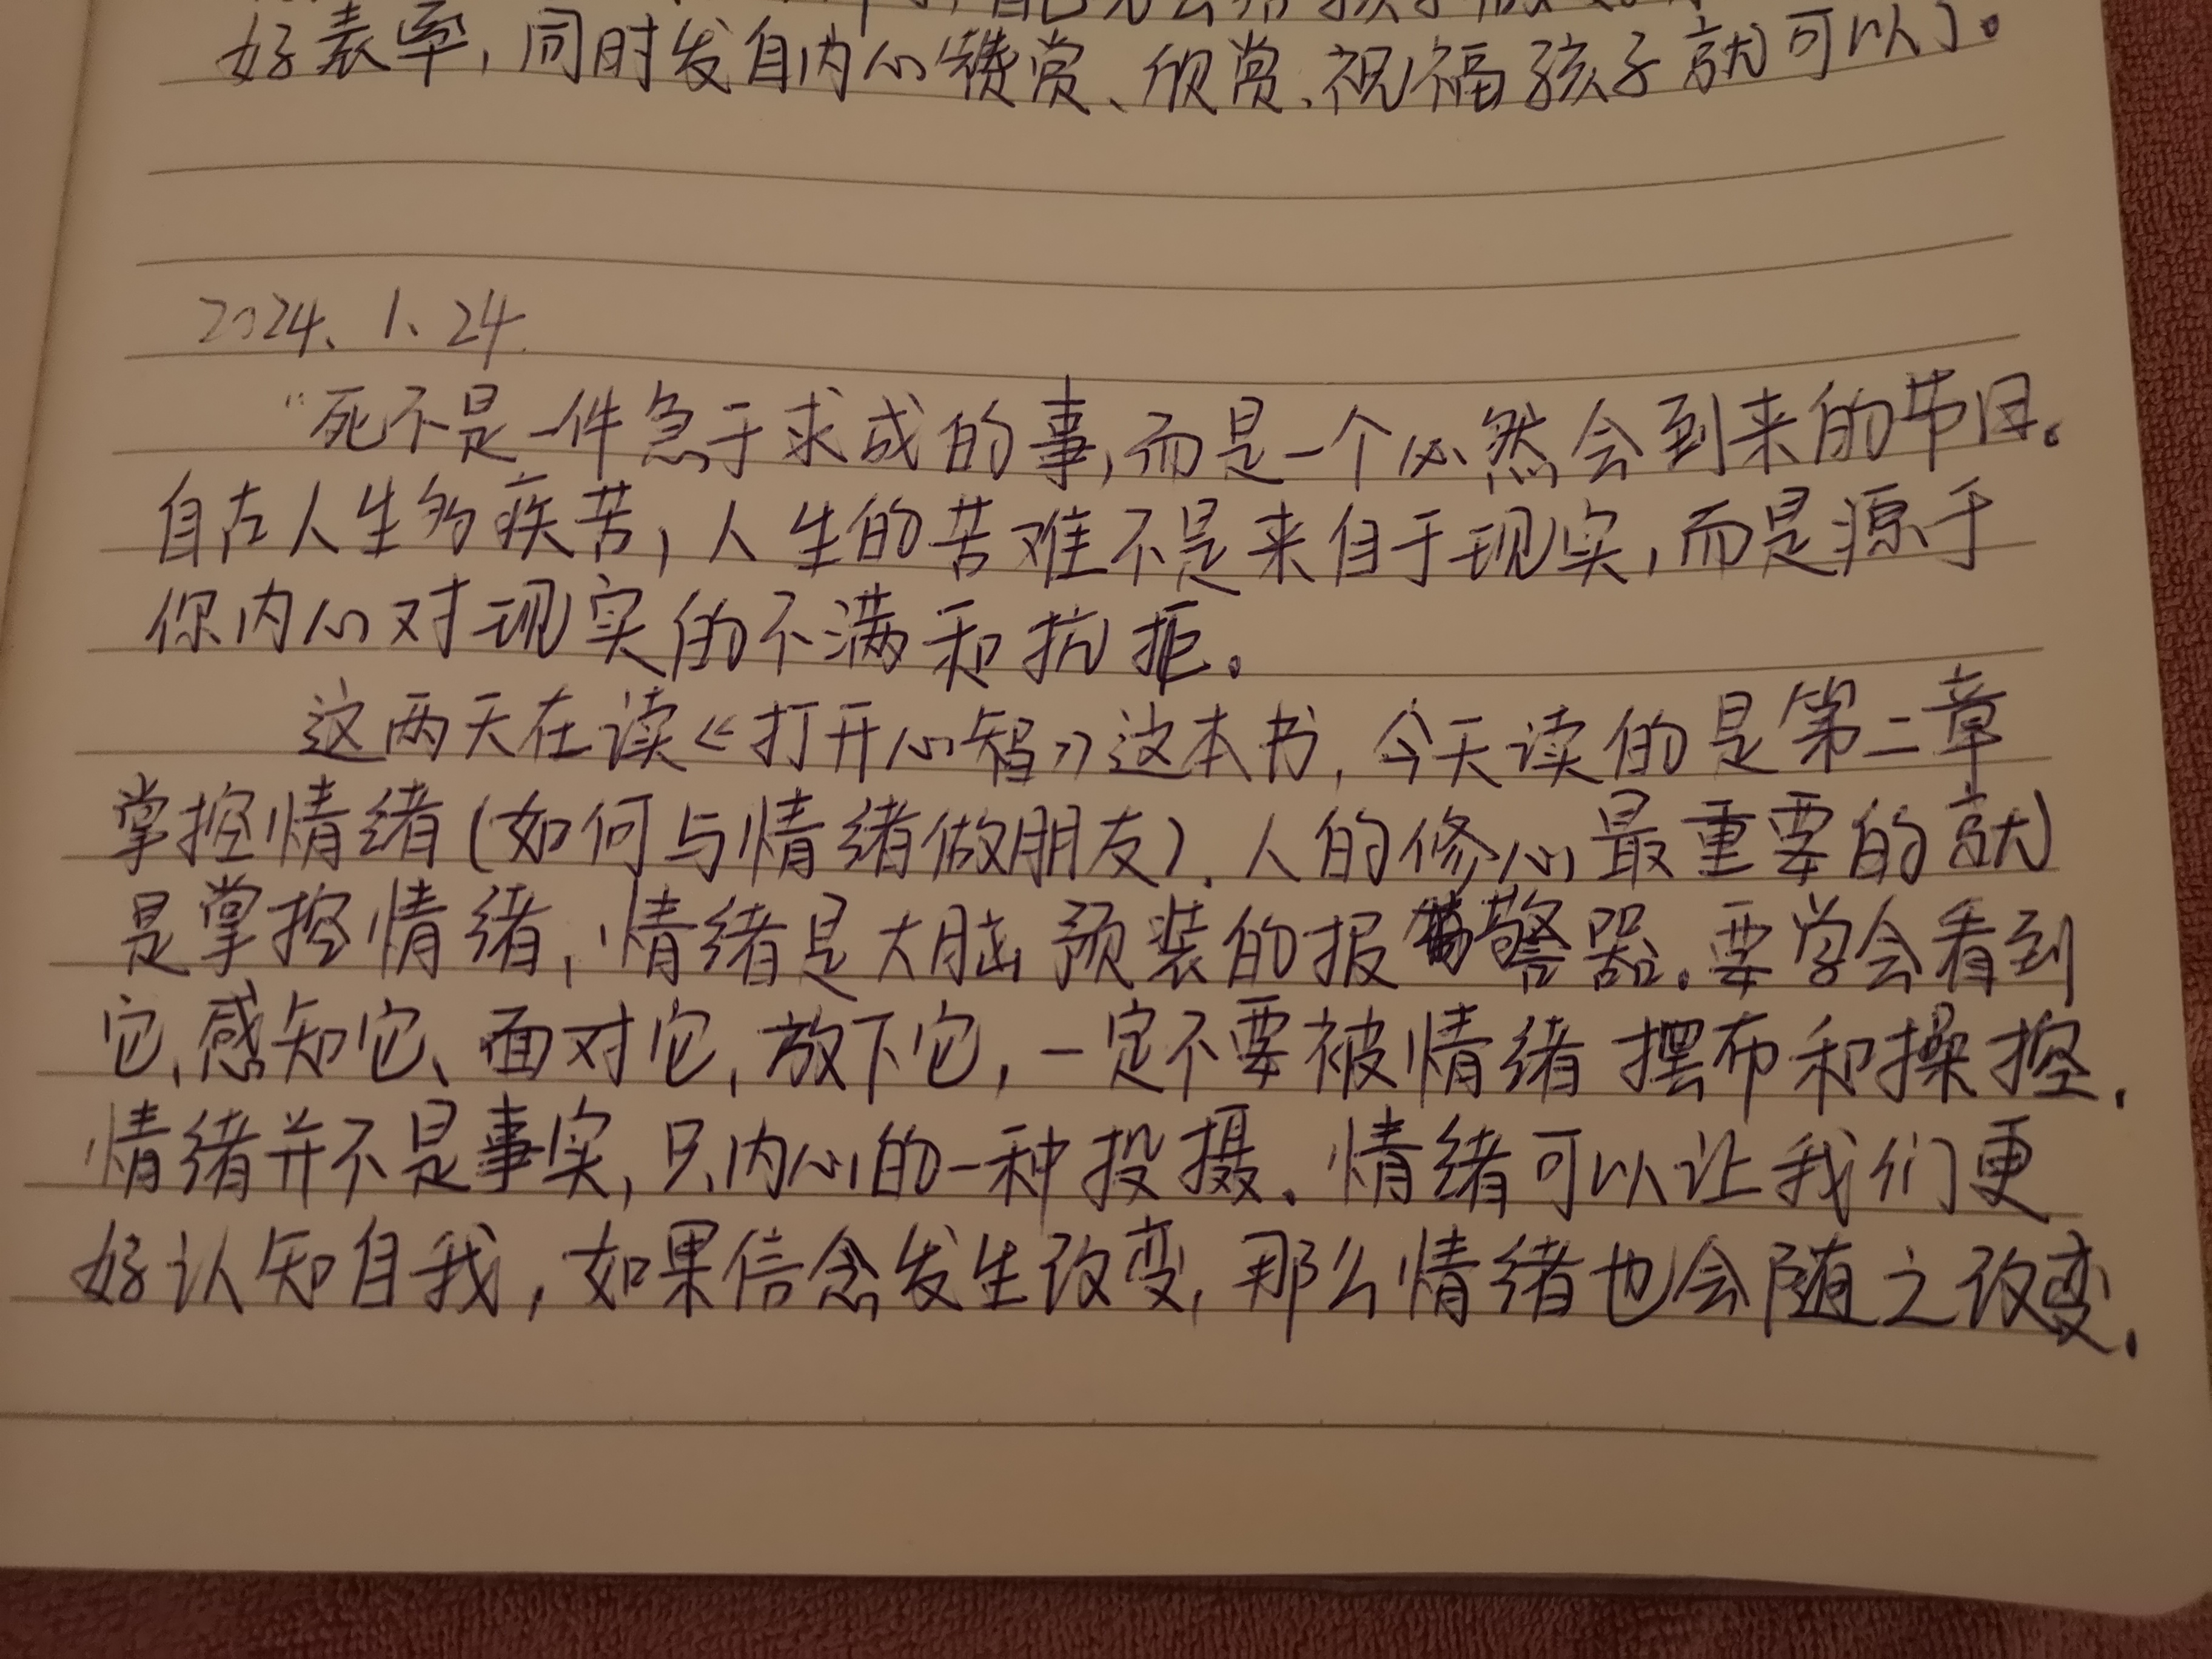 好表率，同时发自内心赞赏、欣赏、祝福孩子就可以了。
2024、1、24
“死不是一件急于求成的事，而是一个必然会到来的节日。
自古人生多疾苦，人生的苦难不是来自于现实，而是源于
你内心对现实的不满和抗拒。
这两天在读《打开心智》这本书，今天读的是第二章
掌控情绪（如何与情绪做朋友）．人的修心最重要的就
是掌控情绪，情绪是大脑预装的报警器．要学会看到
它、感知它、面对它，放下它，一定不要被情绪摆布和操控．
情绪并不是事实，只内心的一种投摄．情绪可以让我们更
好认知自我，如果信念发生改变，那么情绪也会随之改变．